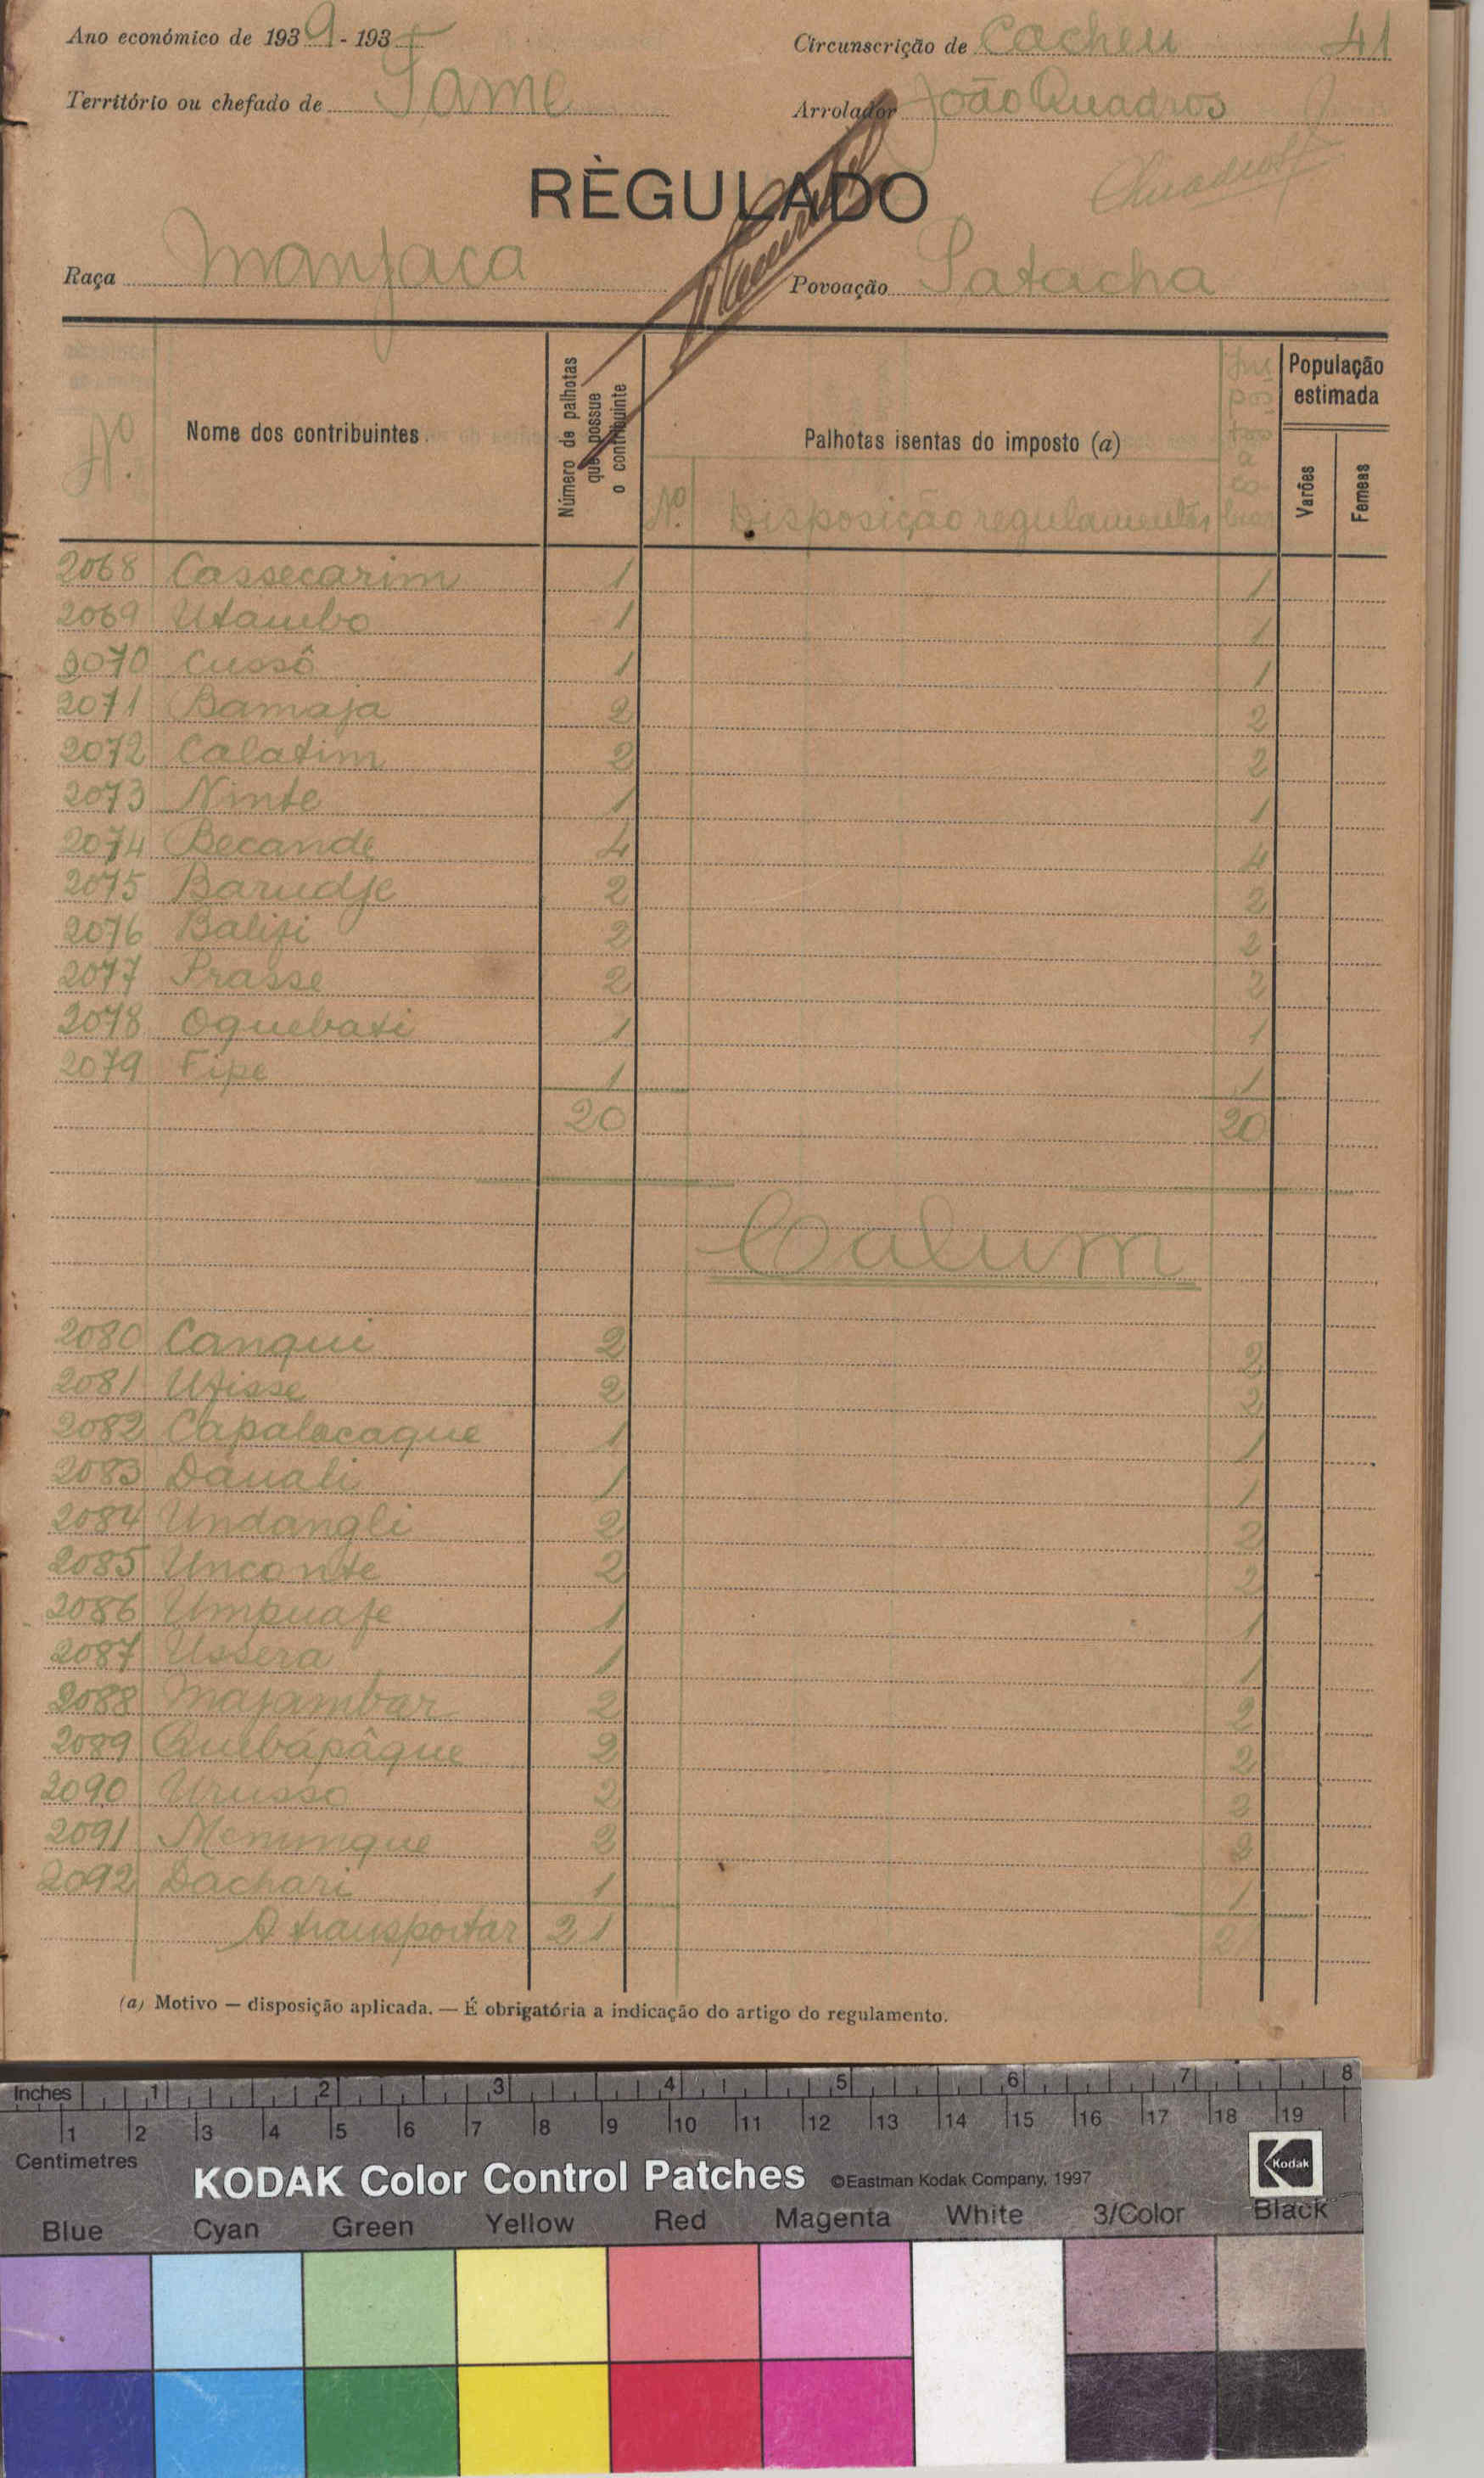 Ano económico de 1939 - 193
Circunscrição de Cacheu 41
Território ou chefado de Tame
Arrolador João Quadros
RÈGULADO
Raça Manjaca
Povoação Patacha
Nº
Nome dos contribuintes
Número de palhotas que possue o contribuinte
Palhotas isentas do imposto (a)
Nº. Disposição regulamentar
População estimada
Varões
Femeas
2068 Cassecarim 1 1
2069 Utambo 1 1
2070 Cussô 1 1
2071 Bamaja 2 2
2072 Calatim 2 2
2073 Ninte 1 1
2074 Becande 4 4
2075 Barudje 2 2
2076 Balifi 2 2
2077 Prasse 2 2
2078 Oquebati 1 1
2079 Fipe 1 1
20 20
Calum
2080 Canqui 2 2
2081 Utisse 2 2
2082 Capalacaque 1 1
2083 Dauali 1 1
2084 Undangli 2 2
2085 Unconte 2 2
2086 Umpuafe 1 1
2087 Ussera 1 1
2088 Majambar 2 2
2089 Quebápâque 2 2
2090 Urusso 2 2
2091 Meninque 2 2
2092 Dachari 1 1
A transportar 21 21
(a) Motivo — disposição aplicada. — É obrigatória a indicação do artigo do regulamento.
Inches 1 2 3 4 5 6 7 8
1 2 3 4 5 6 7 8 9 10 11 12 13 14 15 16 17 18 19
Centimetres
KODAK Color Control Patches ©Eastman Kodak Company, 1997 Kodak
Blue Cyan Green Yellow Red Magenta White 3/Color Black